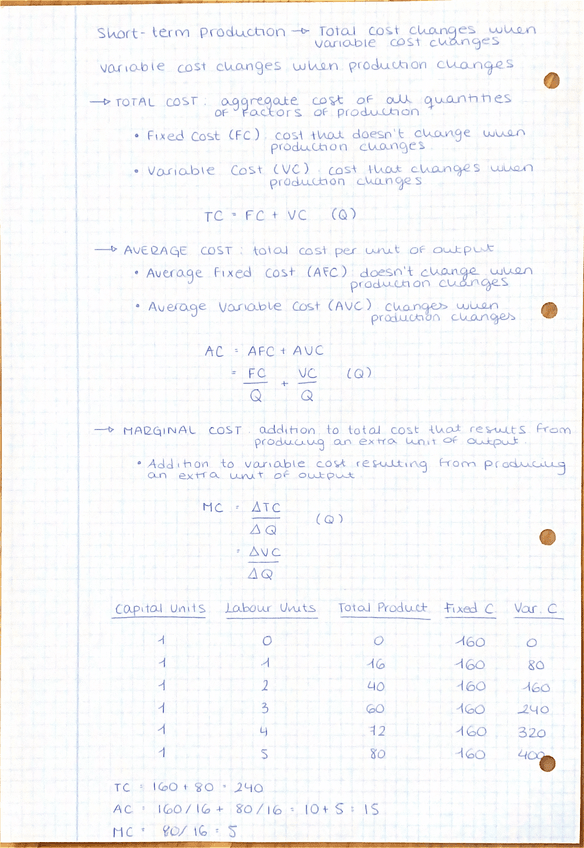 Short-term Production → Total cost changes when
variable cost changes
variable cost changes when production changes
→ TOTAL COST: aggregate cost of all quantities
of factors of production
• Fixed Cost (FC): cost that doesn't change when
production changes.
• Variable Cost (VC): cost that changes when
production changes
TC = FC + VC (Q)
→ AVERAGE COST: total cost per unit of output
• Average Fixed Cost (AFC): doesn't change when
production changes
• Average Variable Cost (AVC): changes when
production changes
AC = AFC + AVC
= FC/Q + VC/Q (Q)
→ MARGINAL COST: addition to total cost that results from
producing an extra unit of output.
• Addition to variable cost resulting from producing
an extra unit of output
MC = ΔTC/ΔQ (Q)
= ΔVC/ΔQ
Capital Units Labour Units Total Product Fixed C Var. C
1 0 0 160 0
1 1 16 160 80
1 2 40 160 160
1 3 60 160 240
1 4 72 160 320
1 5 80 160 400
TC = 160 + 80 = 240
AC = 160/16 + 80/16 = 10 + 5 = 15
MC = 80/16 = 5